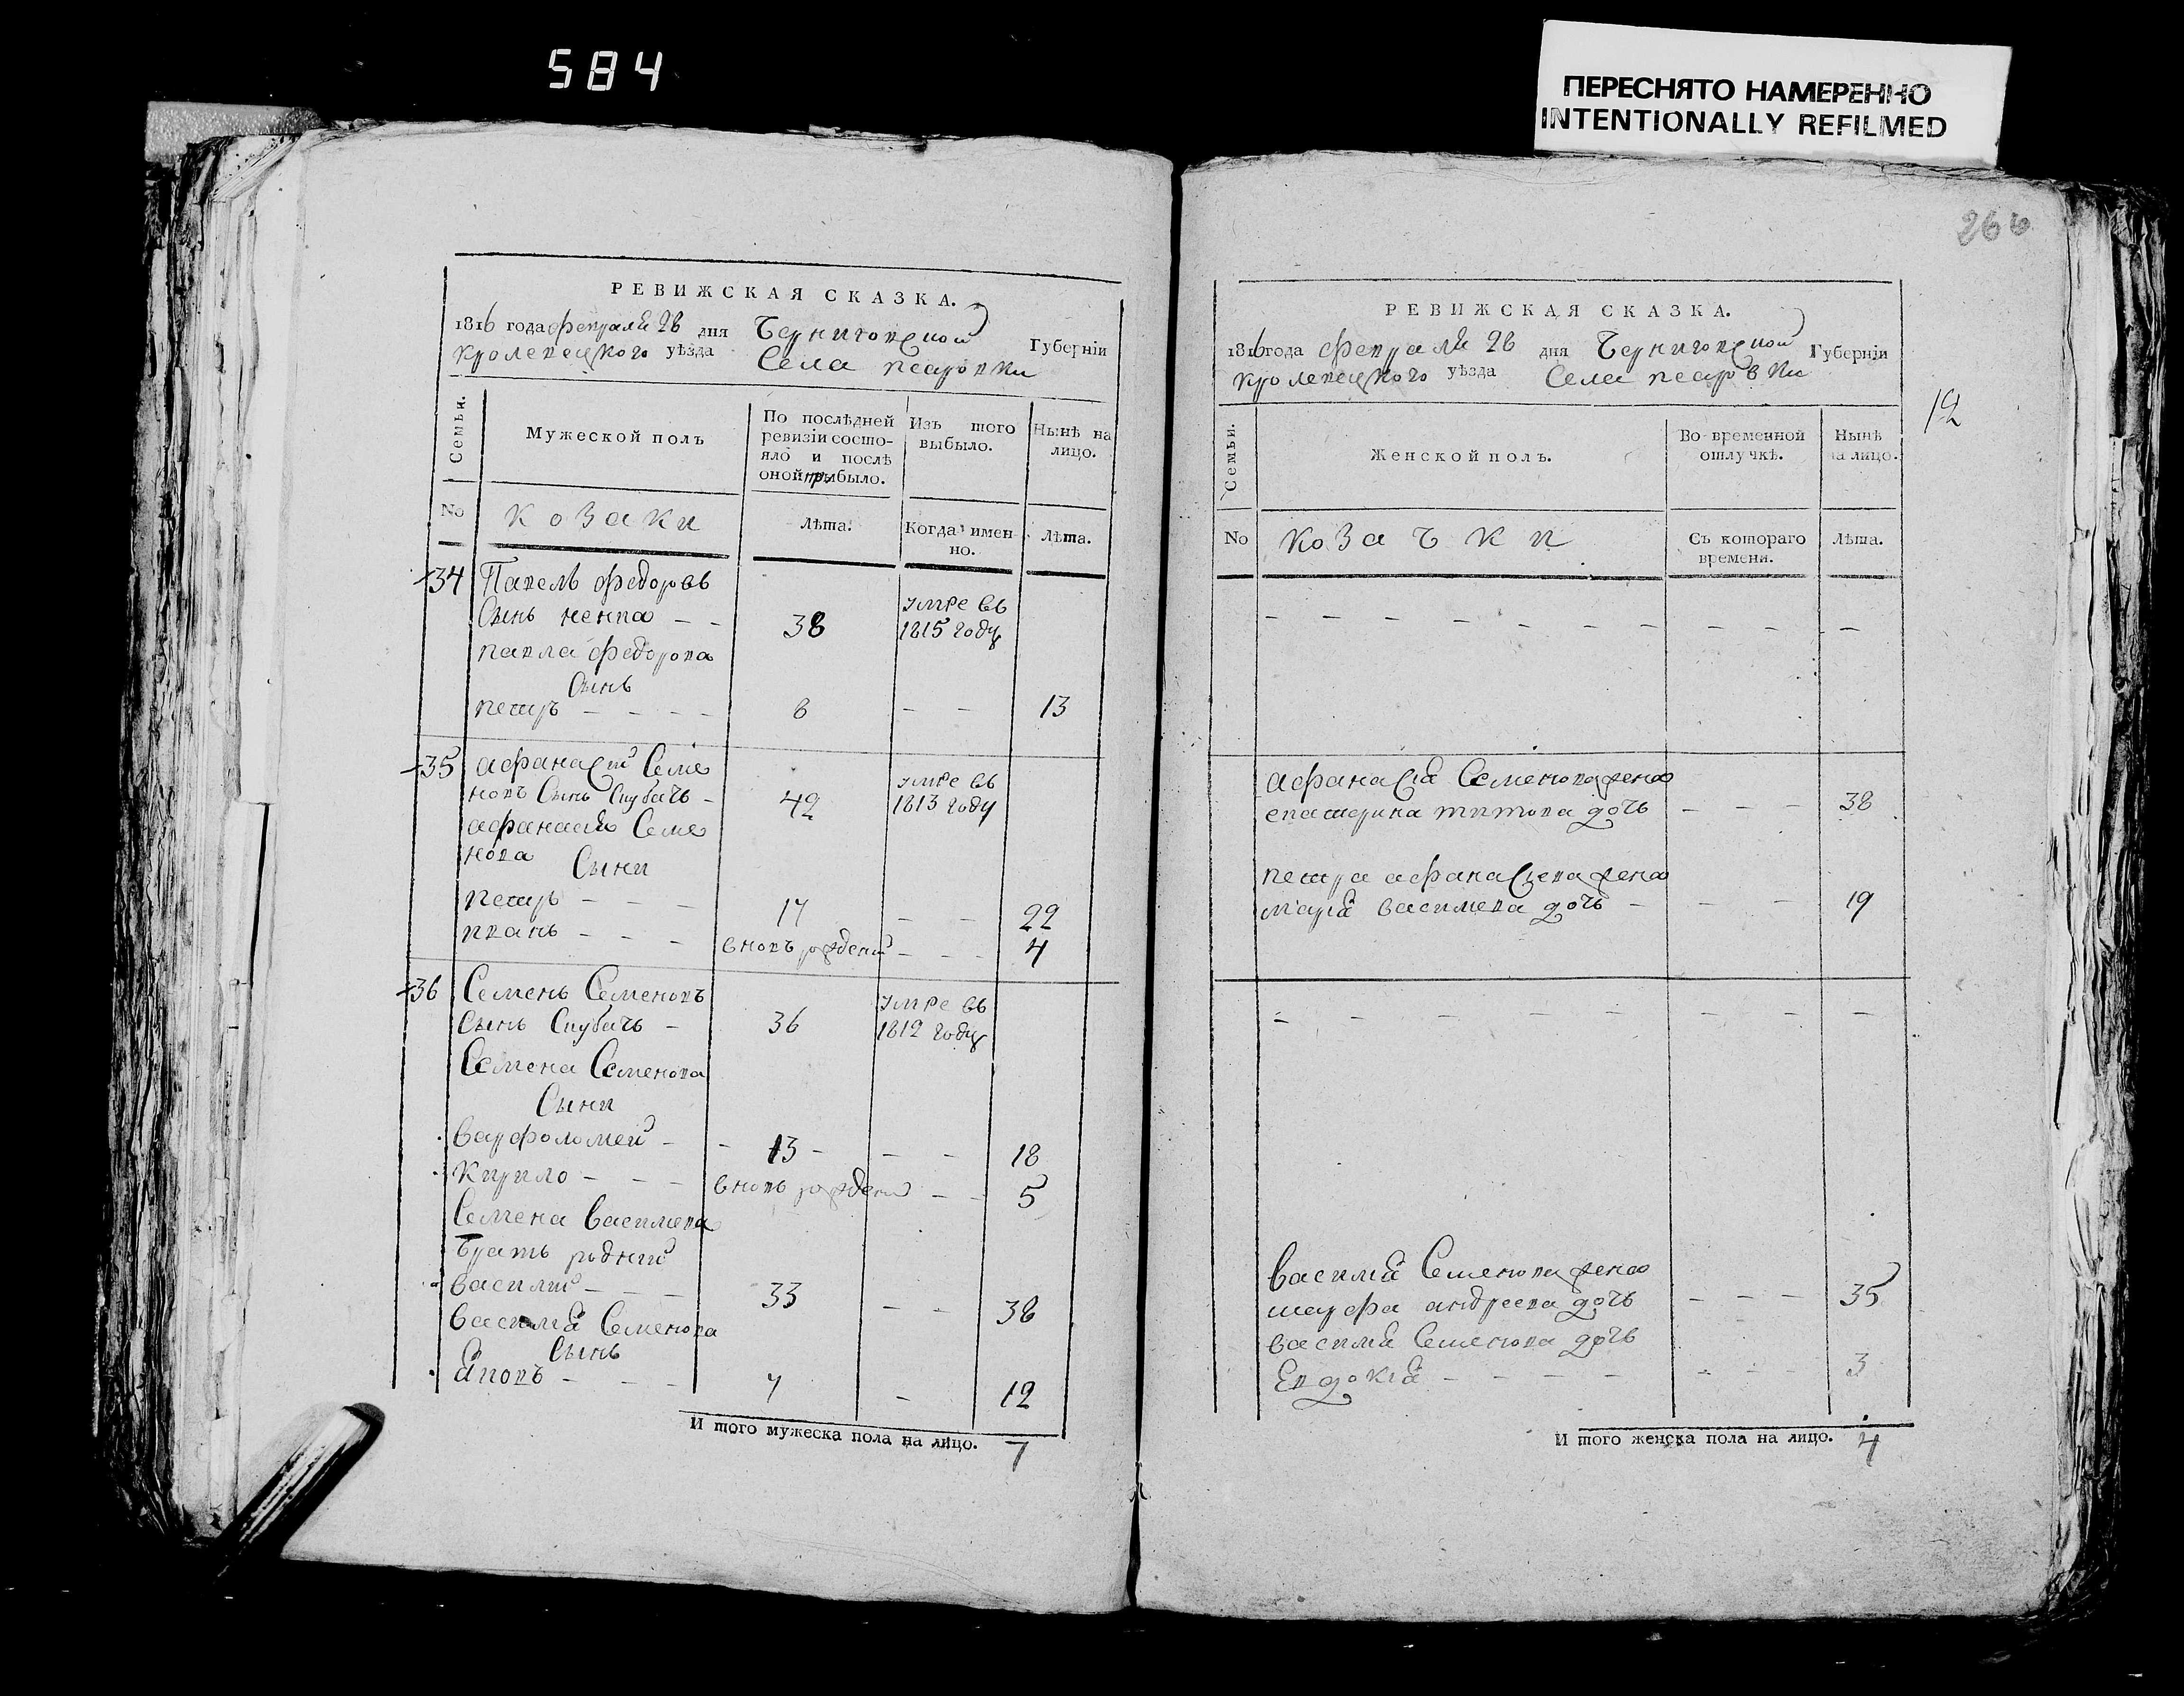 584
ПЕРЕСНЯТО НАМЕРЕННО
INTENTIONALLY REFILMED
266
РЕВИЖСКАЯ СКАЗКА.
1816 года февраля 26 дня Черниговской Губернїи
кролевецкого уѣзда Села петровки
Семьи.
Мужеской полъ
По послѣдней ревизїи состояло и послѣ оной прибыло.
Изъ того выбыло.
Нынѣ на лицо.
No
козаки
Лѣта.
Когда имен-
но.
Лѣта.
34 Павелъ федоровъ
Сынъ ненпа 38 умре въ 1815 году
павла федорова
Сынъ
петръ 8 13
35 афанасий Семе
новъ Сынъ Скубачъ 42 умре въ 1813 году
афанасия Семе
нова Сыни
петръ 17 22
иванъ вновъ рожденъ 4
36 Семенъ Семеновъ
Сынъ Скубачъ 36 умре въ 1812 году
Семена Семенова
Сыни
варфоломей 13 18
кирило вновъ рожденъ 5
Семена василиева
братъ родний
василий 33 38
василия Семенова
Сынъ
яковъ 7 12
И того мужеска пола на лицо. 7
РЕВИЖСКАЯ СКАЗКА.
1816 года февраля 26 дня Черниговской Губернїи
кролевецкого уѣзда Села петровки
12
Семьи.
Женской полъ.
Во временной
отлучкѣ.
Нынѣ
на лицо.
No
козачки
Съ котораго
времени.
Лѣта.
афанасїя Семенова жена
екатерина титова дочь 38
петра афанасиева жена
марїя василиева дочь 19
василия Семенова жена
марфа андреева дочь 35
василия Семенова дочь
Евдокїя 3
И того женска пола на лицо. 4